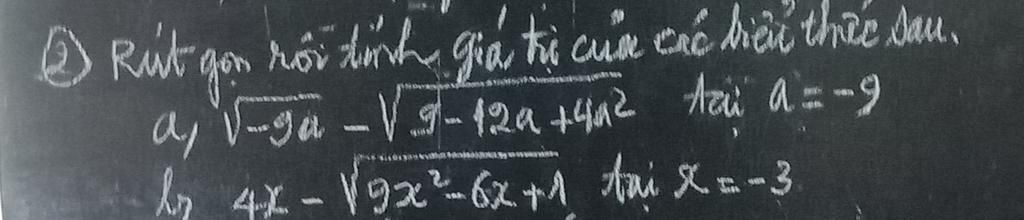 ② Rút gọn rồi tính giá trị của các biểu thức sau.
a, √-9a - √9-12a+4a² tại a = -9
b, 4x - √9x²-6x+1 tại x = -3